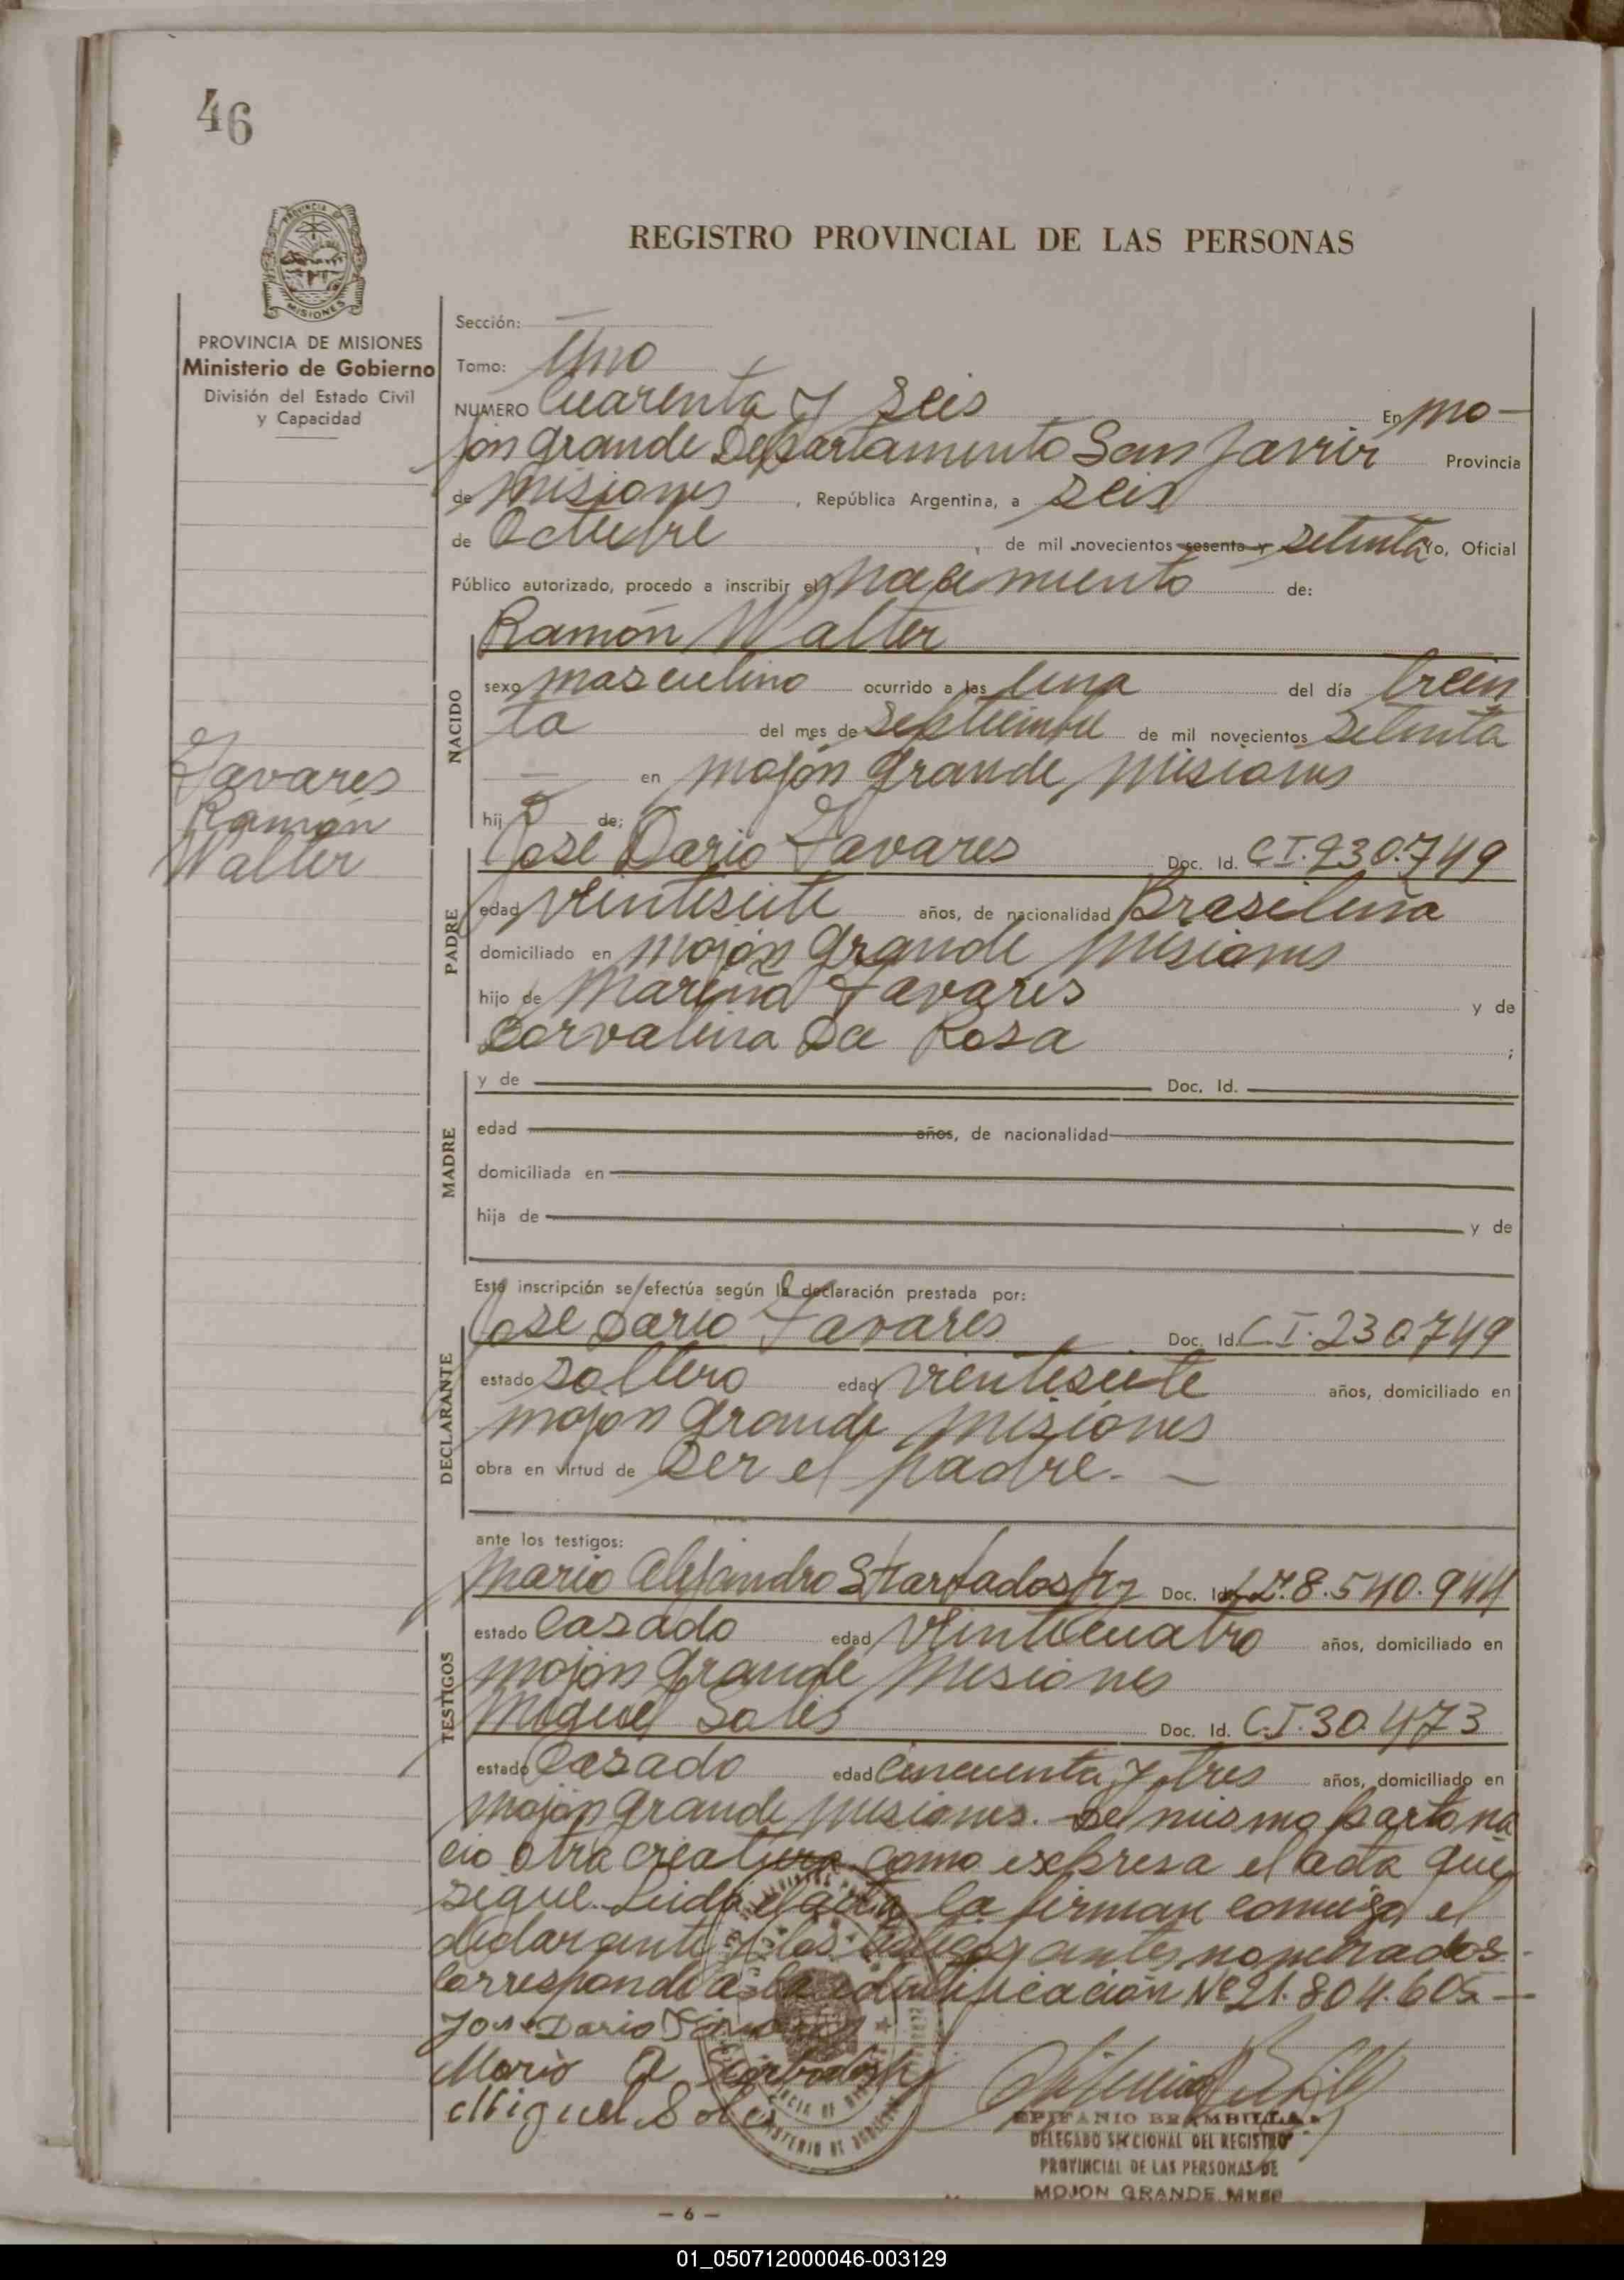 46
REGISTRO PROVINCIAL DE LAS PERSONAS
PROVINCIA DE
MISIONES
PROVINCIA DE MISIONES
Ministerio de Gobierno
División del Estado Civil
y Capacidad
Tavares
Ramón
Walter
Sección: —
Tomo: Uno
NUMERO Cuarenta y Seis En Mo-
jón Grande Departamento San Javier Provincia
de Misiones, República Argentina, a Seis
de Octubre, de mil novecientos sesenta y Setenta Yo, Oficial
Público autorizado, procedo a inscribir el nacimiento de:
Ramón Walter
NACIDO
sexo masculino ocurrido a las Una del día trein
ta del mes de Septiembre de mil novecientos Setenta
— en Mojón Grande, Misiones
hijo de:
José Dario Tavares Doc. Id. C.I. 230.749
PADRE
edad veintisiete años, de nacionalidad Brasileña
domiciliado en Mojón Grande Misiones
hijo de Tavares y de
Da Rosa ;
MADRE
y de Doc. Id.
edad años, de nacionalidad
domiciliada en
hija de y de
Esta inscripción se efectúa según la declaración prestada por:
José Dario Tavares Doc. Id. C.I. 230.749
DECLARANTE
estado Soltero edad vientesiete años, domiciliado en
Mojon Grande Misiones
obra en virtud de Ser el padre. —
ante los testigos:
TESTIGOS
Mario Alejandro Doc. Id. 8.540.944
estado Casado edad Veinticuatro años, domiciliado en
Mojón Grande Misiones
Miguel Solis Doc. Id. C.I. 30.473
estado Casado edad Cincuenta y tres años, domiciliado en
Mojón Grande Misiones. Del mismo parto na
cio otra creatura como expresa el acta que
sigue. Leida el acta la firman conmigo el
declarante y los testigos antes nombrados.
Corresponde a la identificación Nº 21.804.605 —
José Dario Tavares
Mario A
Miguel Solis
EPIFANIO BRAMBILLA
DELEGADO SECCIONAL DEL REGISTRO
PROVINCIAL DE LAS PERSONAS DE
MOJON GRANDE, MNES
— 6 —
01_050712000046-003129